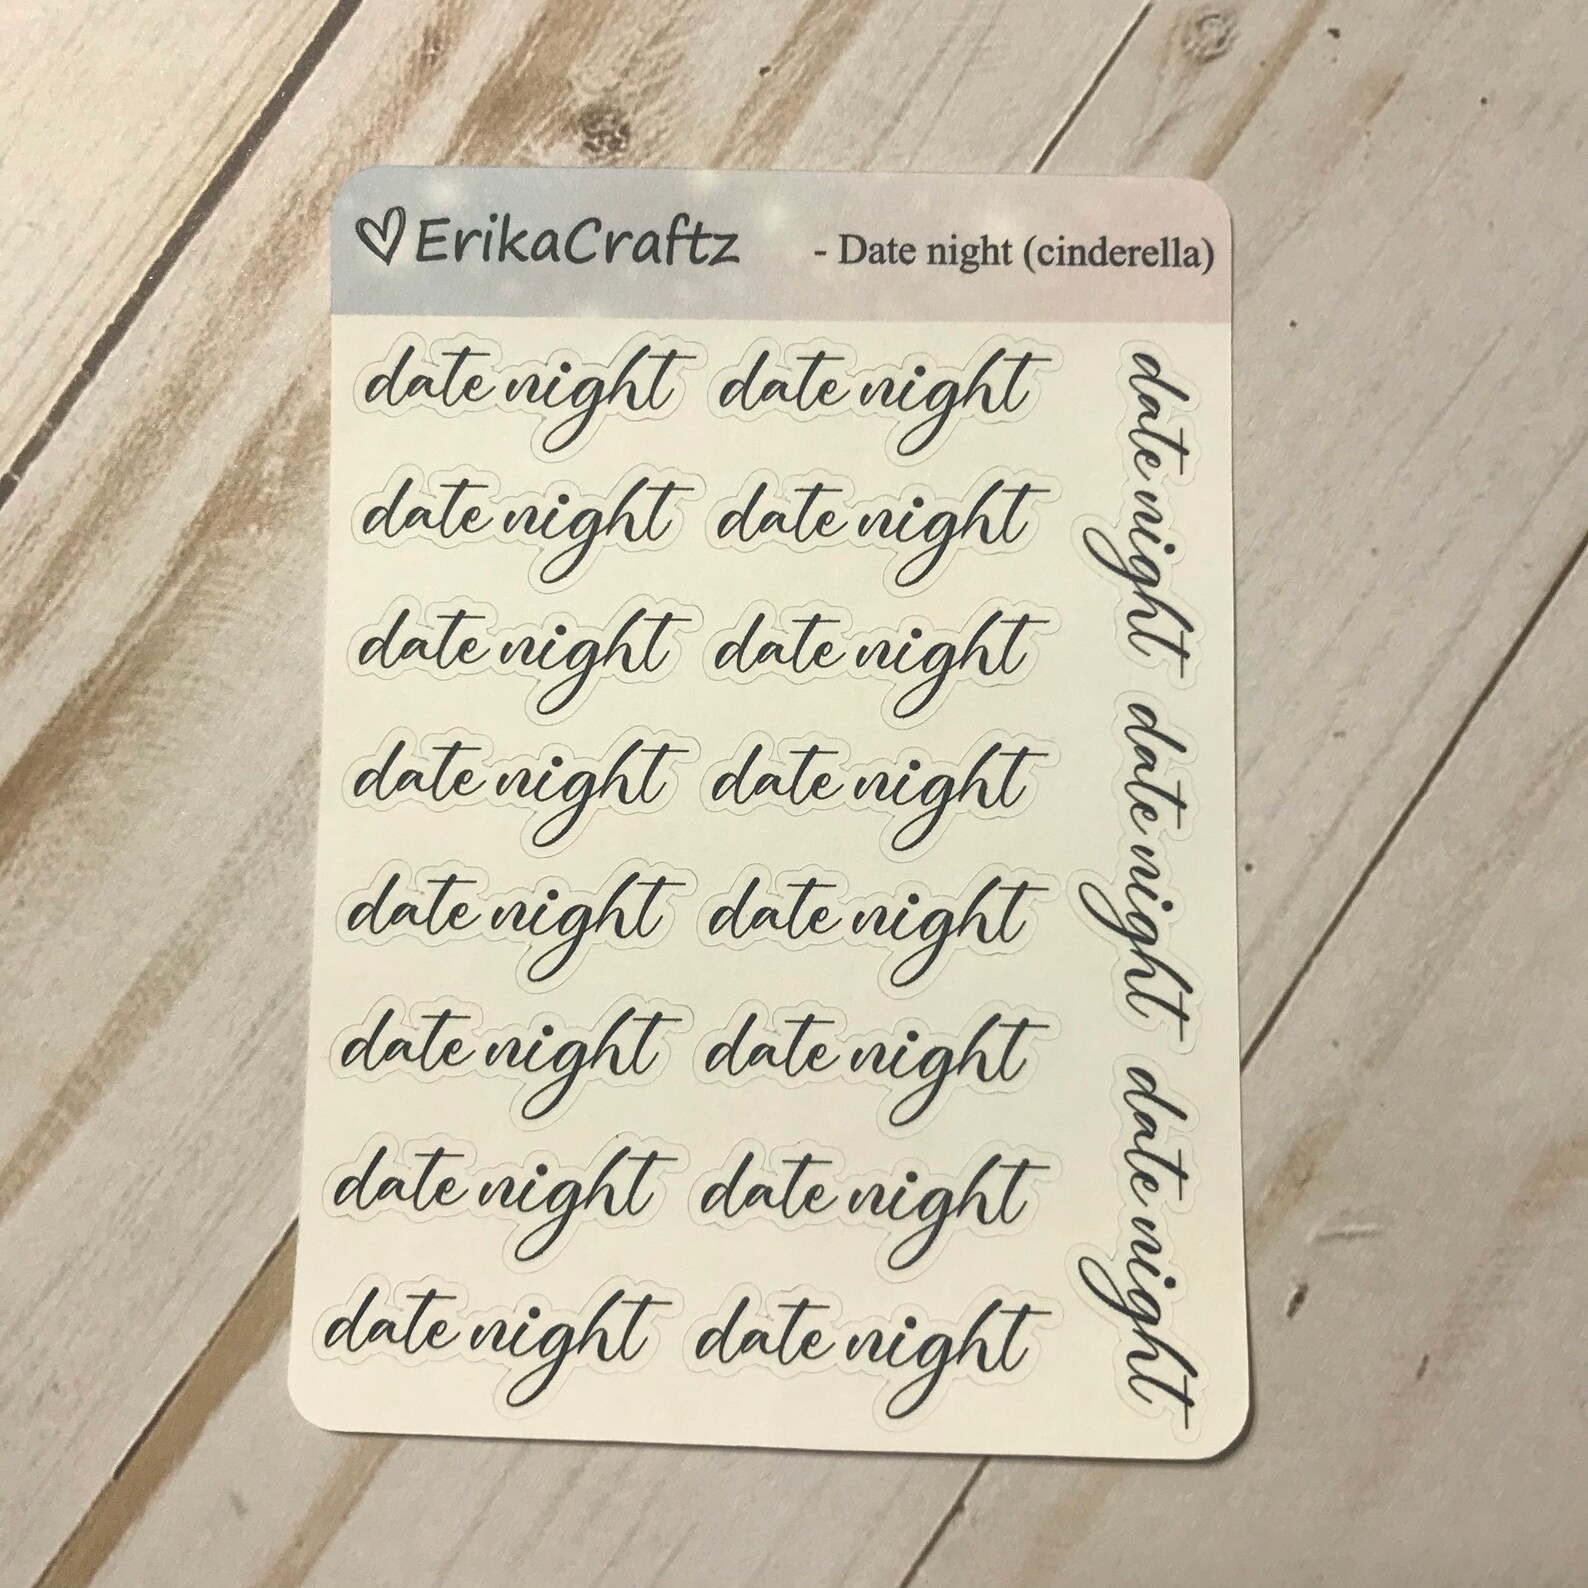 ♡ErikaCraftz - Date night (cinderella)
date night date night
date night date night
date night date night
date night date night
date night date night
date night date night
date night date night
date night date night
date night
date night
date night